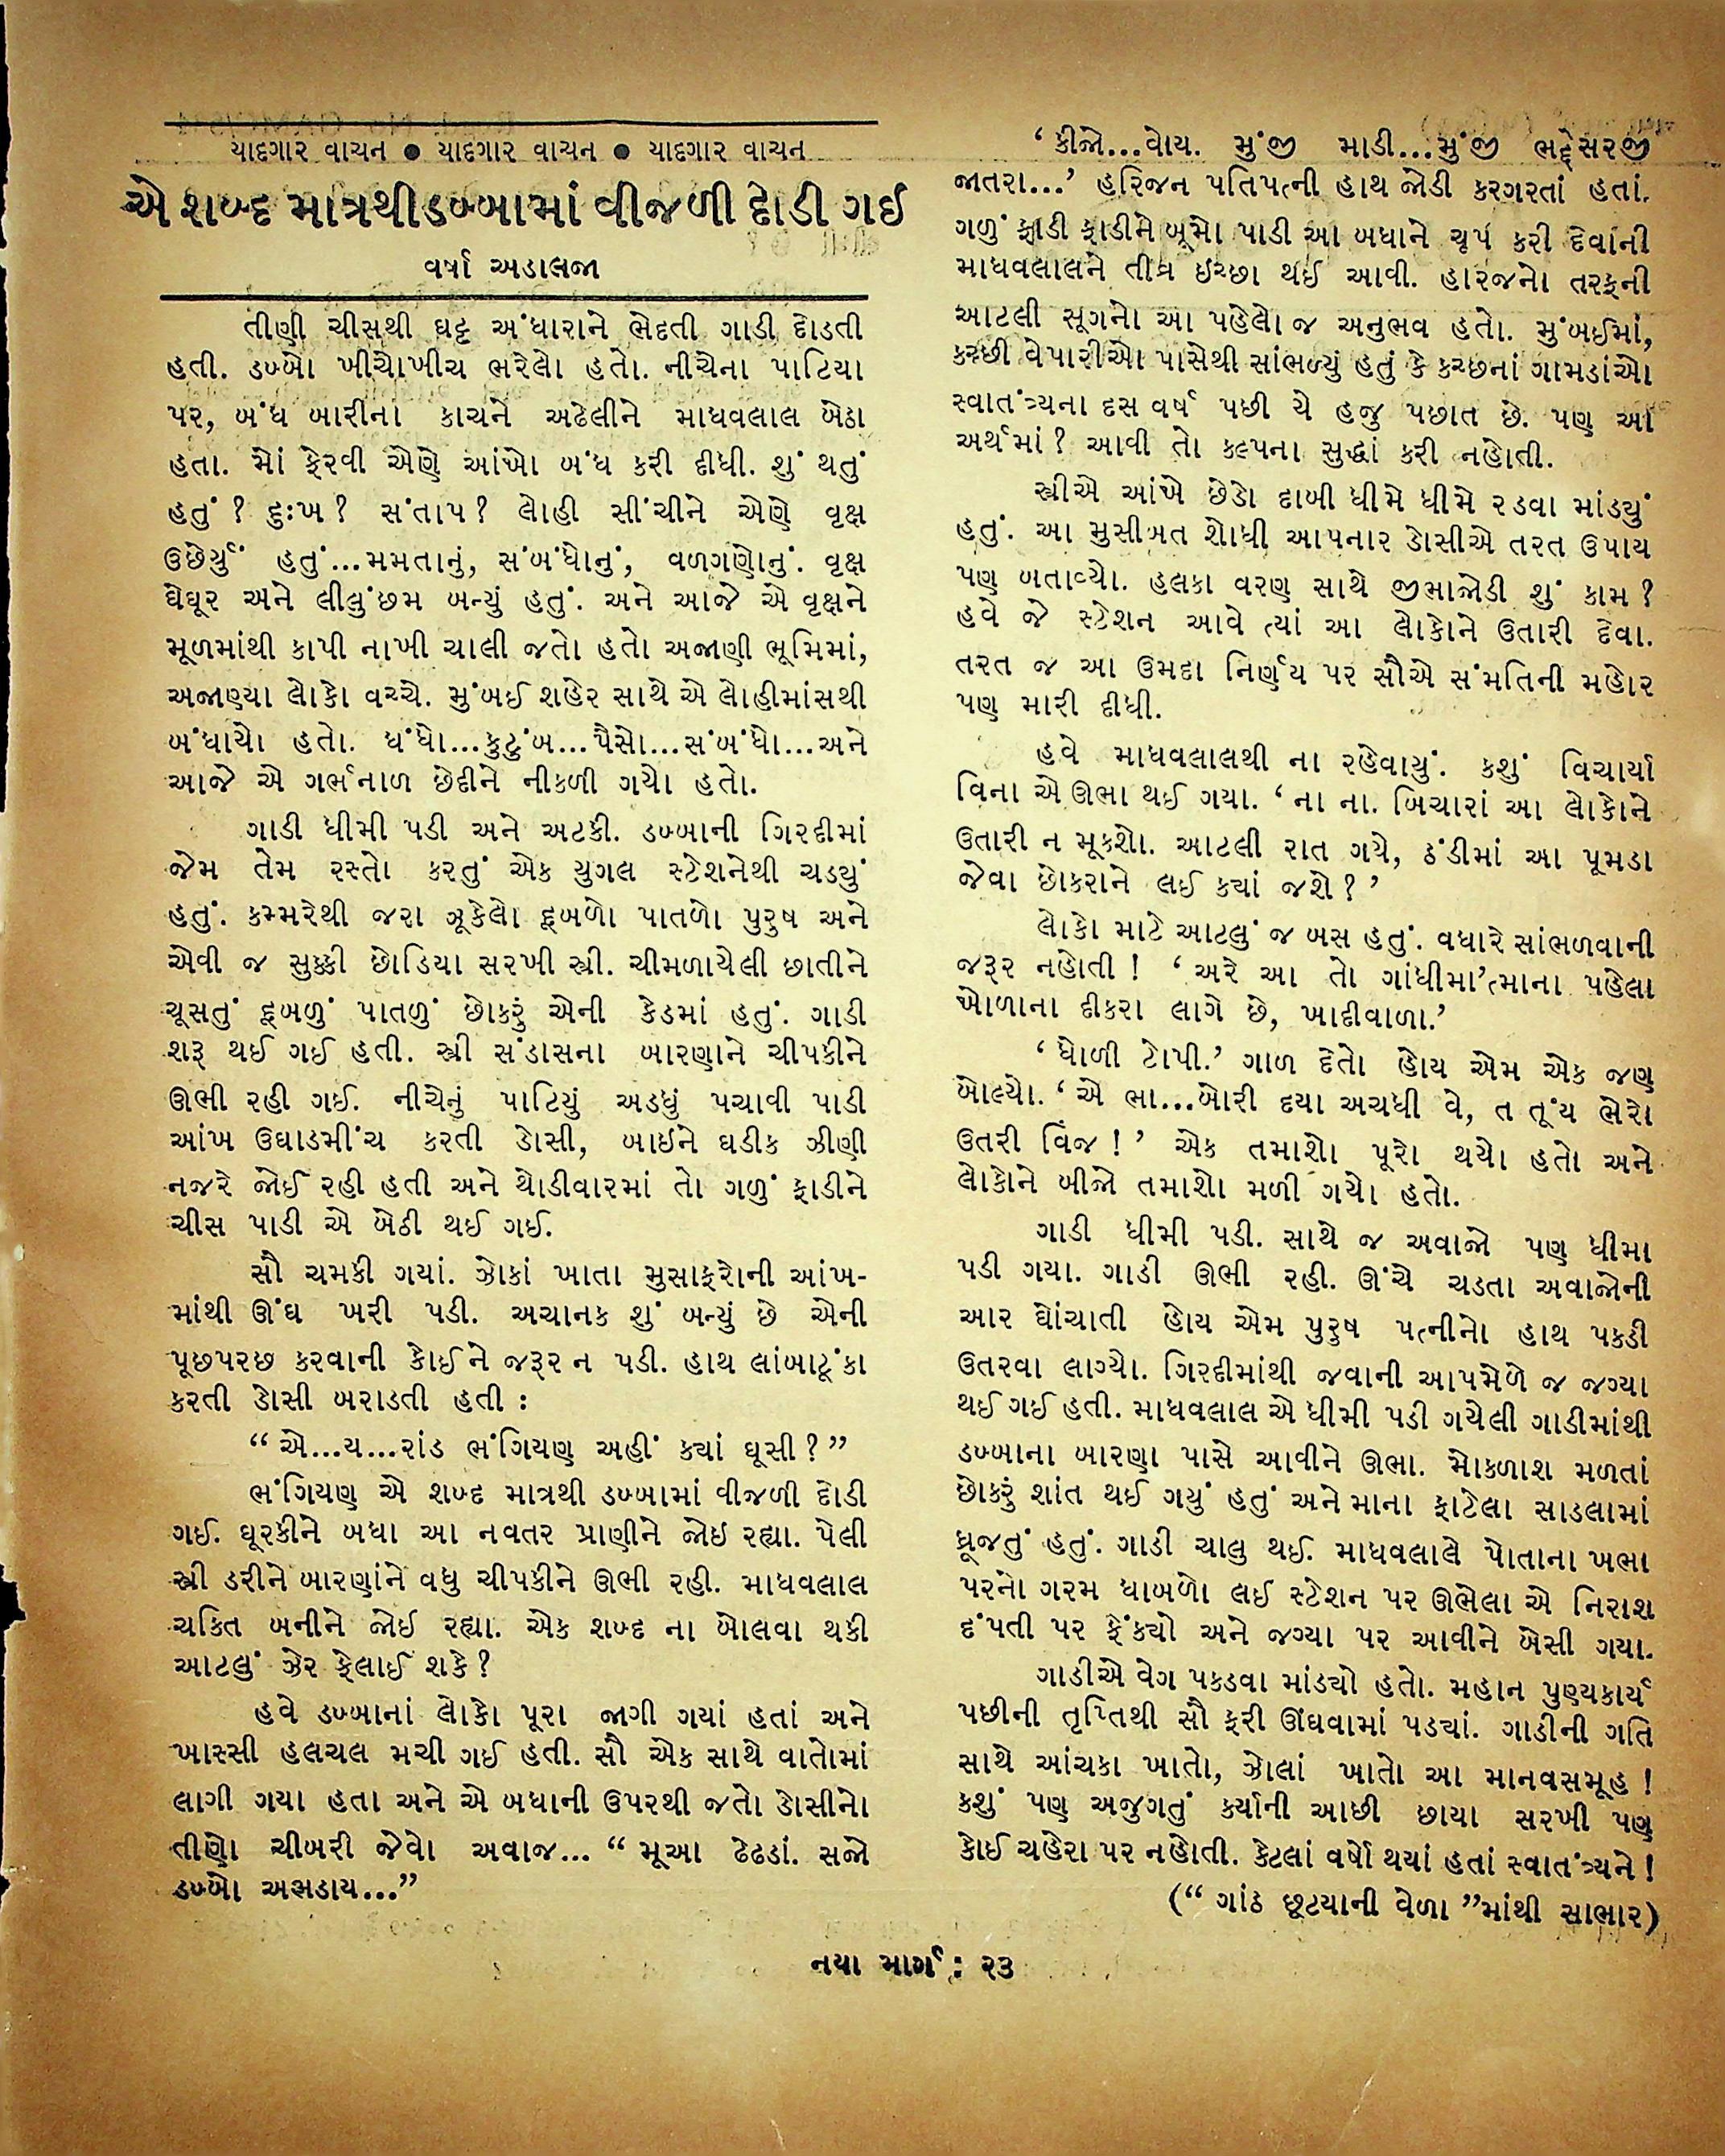 યાદગાર વાચન ● યાદગાર વાચન ● યાદગાર વાચન
એ શબ્દ માત્રથી ડબ્બામાં વીજળી દોડી ગઈ
વર્ષા અડાલજા
તીણી ચીસથી ઘટ્ટ અંધારાને ભેદતી ગાડી દોડતી
હતી. ડબ્બો ખીચોખીચ ભરેલો હતો. નીચેના પાટિયા
પર, બંધ બારીના કાચને અઢેલીને માધવલાલ બેઠા
હતા. મોં ફેરવી એણે આંખો બંધ કરી દીધી. શું થતું
હતું ? દુઃખ ? સંતાપ ? લોહી સીંચીને એણે વૃક્ષ
ઉછેર્યું હતું...મમતાનું, સંબંધોનું, વળગણોનું. વૃક્ષ
ઘેઘૂર અને લીલુંછમ બન્યું હતું. અને આજે એ વૃક્ષને
મૂળમાંથી કાપી નાખી ચાલી જતો હતો અજાણી ભૂમિમાં,
અજાણ્યા લોકો વચ્ચે. મુંબઈ શહેર સાથે એ લોહીમાંસથી
બંધાયો હતો. ધંધો...કુટુંબ...પૈસો...સંબંધો...અને
આજે એ ગર્ભનાળ છેદીને નીકળી ગયો હતો.
ગાડી ધીમી પડી અને અટકી. ડબ્બાની ગિરદીમાં
જેમ તેમ રસ્તો કરતું એક યુગલ સ્ટેશનેથી ચડ્યું
હતું. કમ્મરેથી જરા ઝૂકેલો દૂબળો પાતળો પુરુષ અને
એવી જ સુક્કી છોડિયા સરખી સ્ત્રી. ચીમળાયેલી છાતીને
ચૂસતું દૂબળું પાતળું છોકરું એની કેડમાં હતું. ગાડી
શરૂ થઈ ગઈ હતી. સ્ત્રી સંડાસના બારણાને ચીપકીને
ઊભી રહી ગઈ. નીચેનું પાટિયું અડધું પચાવી પાડી
આંખ ઉઘાડમીંચ કરતી ડોસી, બાઈને ઘડીક ઝીણી
નજરે જોઈ રહી હતી અને થોડીવારમાં તો ગળું ફાડીને
ચીસ પાડી એ બેઠી થઈ ગઈ.
સૌ ચમકી ગયાં. ઝોકાં ખાતા મુસાફરોની આંખ-
માંથી ઊંઘ ખરી પડી. અચાનક શું બન્યું છે એની
પૂછપરછ કરવાની કોઈને જરૂર ન પડી. હાથ લાંબાટૂંકા
કરતી ડોસી બરાડતી હતી :
“ એ...ય...રાંડ ભંગિયણ અહીં ક્યાં ઘૂસી ? ”
ભંગિયણ એ શબ્દ માત્રથી ડબ્બામાં વીજળી દોડી
ગઈ. ઘૂરકીને બધા આ નવતર પ્રાણીને જોઇ રહ્યા. પેલી
સ્ત્રી ડરીને બારણાંને વધુ ચીપકીને ઊભી રહી. માધવલાલ
ચકિત બનીને જોઈ રહ્યા. એક શબ્દ ના બોલવા થકી
આટલું ઝેર ફેલાઈ શકે ?
હવે ડબ્બાનાં લોકો પૂરા જાગી ગયાં હતાં અને
ખાસ્સી હલચલ મચી ગઈ હતી. સૌ એક સાથે વાતોમાં
લાગી ગયા હતા અને એ બધાની ઉપરથી જતો ડોસીનો
તીણો ચીબરી જેવો અવાજ... “ મૂઆ ઢેઢડાં. સજો
ડબ્બો અભડાય...”
‘ કીજો...વોય. મુંજી માડી...મુંજી ભદ્રેસરજી
જાતરા...’ હરિજન પતિપત્ની હાથ જોડી કરગરતાં હતાં.
ગળું ફાડી ફાડીને બૂમો પાડી આ બધાને ચૂપ કરી દેવાની
માધવલાલને તીવ્ર ઇચ્છા થઈ આવી. હરિજનો તરફની
આટલી સૂગનો આ પહેલો જ અનુભવ હતો. મુંબઈમાં,
કચ્છી વેપારીઓ પાસેથી સાંભળ્યું હતું કે કચ્છનાં ગામડાંઓ
સ્વાતંત્ર્યના દસ વર્ષ પછી યે હજુ પછાત છે. પણ આ
અર્થમાં ? આવી તો કલ્પના સુદ્ધાં કરી નહોતી.
સ્ત્રીએ આંખે છેડો દાબી ધીમે ધીમે રડવા માંડ્યું
હતું. આ મુસીબત શોધી આપનાર ડોસીએ તરત ઉપાય
પણ બતાવ્યો. હલકા વરણ સાથે જીભાજોડી શું કામ ?
હવે જે સ્ટેશન આવે ત્યાં આ લોકોને ઉતારી દેવા.
તરત જ આ ઉમદા નિર્ણય પર સૌએ સંમતિની મહોર
પણ મારી દીધી.
હવે માધવલાલથી ના રહેવાયું. કશું વિચાર્યા
વિના એ ઊભા થઈ ગયા. ‘ ના ના. બિચારાં આ લોકોને
ઉતારી ન મૂકશો. આટલી રાત ગયે, ઠંડીમાં આ પૂમડા
જેવા છોકરાને લઈ ક્યાં જશે ? ’
લોકો માટે આટલું જ બસ હતું. વધારે સાંભળવાની
જરૂર નહોતી ! ‘ અરે આ તો ગાંધીમા’ત્માના પહેલા
ખોળાના દીકરા લાગે છે, ખાદીવાળા.’
‘ ધોળી ટોપી.’ ગાળ દેતો હોય એમ એક જણ
બોલ્યો. ‘ એ ભા...બોરી દયા અચધી વે, ત તૂંય ભેરો
ઉતરી વિંજ ! ’ એક તમાશો પૂરો થયો હતો અને
લોકોને બીજો તમાશો મળી ગયો હતો.
ગાડી ધીમી પડી. સાથે જ અવાજો પણ ધીમા
પડી ગયા. ગાડી ઊભી રહી. ઊંચે ચડતા અવાજોની
આર ઘોંચાતી હોય એમ પુરુષ પત્નીનો હાથ પકડી
ઉતરવા લાગ્યો. ગિરદીમાંથી જવાની આપમેળે જ જગ્યા
થઈ ગઈ હતી. માધવલાલ એ ધીમી પડી ગયેલી ગાડીમાંથી
ડબ્બાના બારણા પાસે આવીને ઊભા. મોકળાશ મળતાં
છોકરું શાંત થઈ ગયું હતું અને માના ફાટેલા સાડલામાં
ધ્રૂજતું હતું. ગાડી ચાલુ થઈ. માધવલાલે પોતાના ખભા
પરનો ગરમ ધાબળો લઈ સ્ટેશન પર ઊભેલા એ નિરાશ
દંપતી પર ફેંક્યો અને જગ્યા પર આવીને બેસી ગયા.
ગાડીએ વેગ પકડવા માંડ્યો હતો. મહાન પુણ્યકાર્ય
પછીની તૃપ્તિથી સૌ ફરી ઊંઘવામાં પડ્યાં. ગાડીની ગતિ
સાથે આંચકા ખાતો, ઝોલાં ખાતો આ માનવસમૂહ !
કશું પણ અજુગતું કર્યાની આછી છાયા સરખી પણ
કોઈ ચહેરા પર નહોતી. કેટલાં વર્ષો થયાં હતાં સ્વાતંત્ર્યને !
(“ ગાંઠ છૂટયાની વેળા ”માંથી સાભાર)
નયા માર્ગ : ૨૩